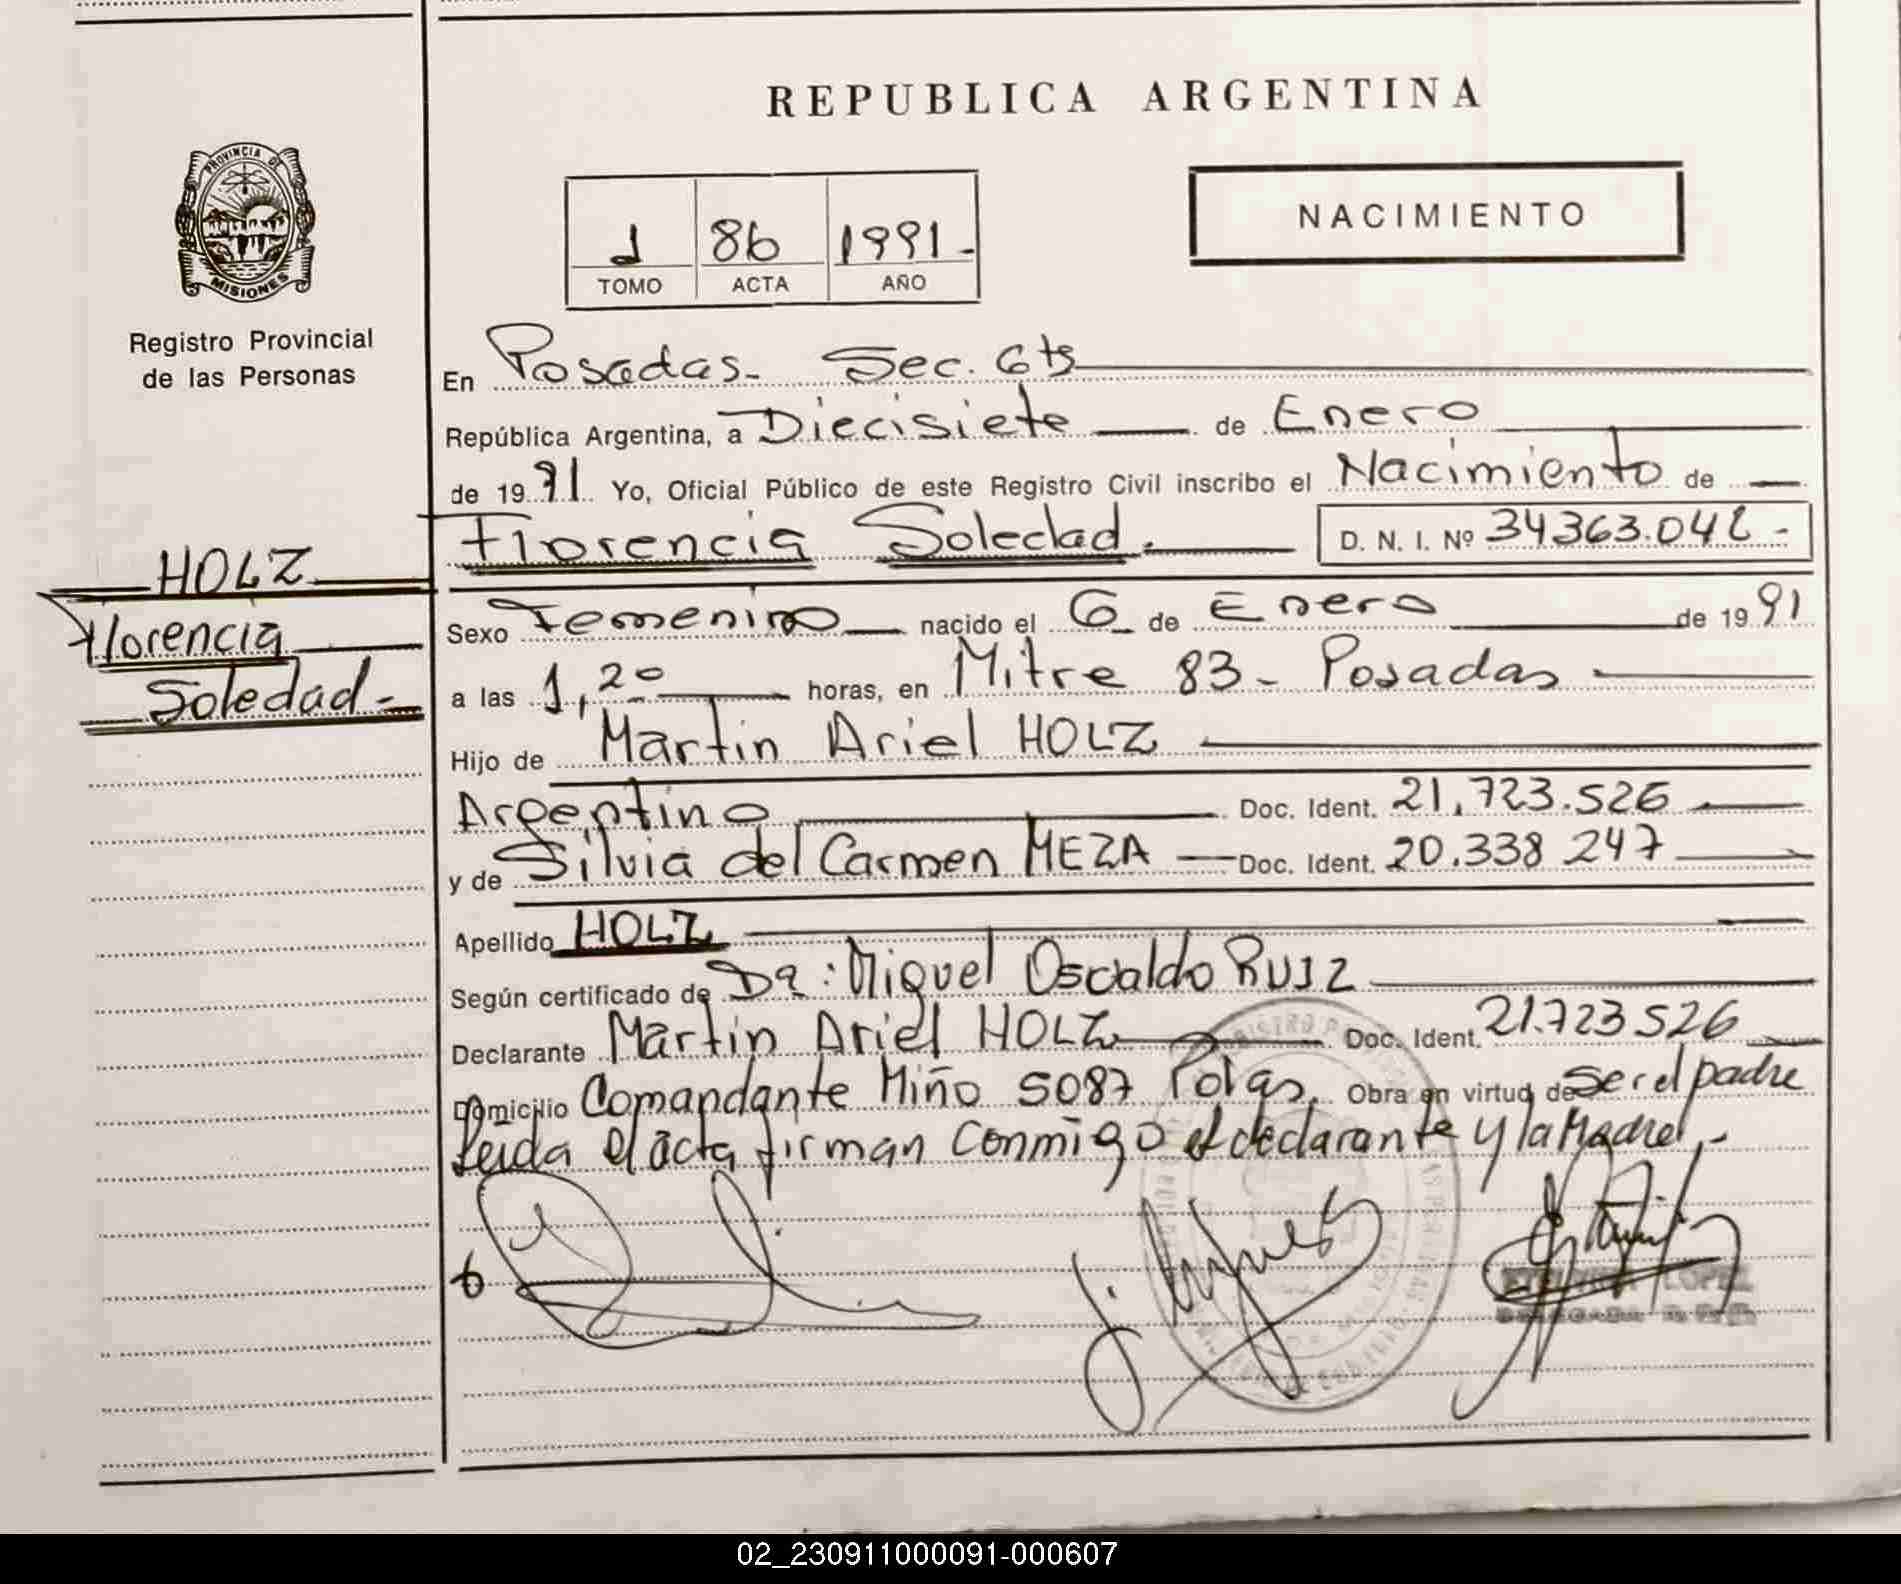 REPUBLICA ARGENTINA
PROVINCIA DE
MISIONES
Registro Provincial
de las Personas
1 86 1991-
TOMO ACTA AÑO
NACIMIENTO
En Posadas- Sec. 6ta
República Argentina, a Diecisiete de Enero
de 19 91 Yo, Oficial Público de este Registro Civil inscribo el Nacimiento de
Florencia Soledad.- D. N. I. Nº 34363.042-
HOLZ
Florencia
Soledad-
Sexo Femenino nacido el 6 de Enero de 19 91
a las 1,20 horas, en Mitre 83- Posadas
Hijo de Martin Ariel HOLZ
Argentino Doc. Ident. 21.723.526
y de Silvia del Carmen MEZA Doc. Ident. 20.338 247
Apellido HOLZ
Según certificado de Dr: Miguel Oscaldo RUIZ
Declarante Martin Ariel HOLZ Doc. Ident. 21.723 526
Domicilio Comandante Miño 5087 Obra en virtud de ser el padre
Leida el acta firman conmigo el declarante y la Madre.-
LOPEZ
02_230911000091-000607